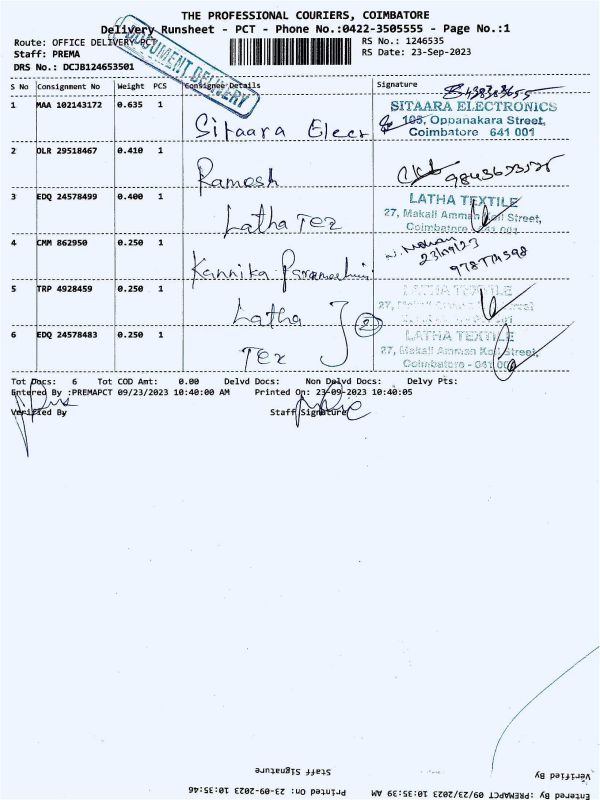 THE PROFESSIONAL COURIERS, COIMBATORE
Delivery Runsheet - PCT - Phone No.:0422-3505555 - Page No.:1
Route: OFFICE DELIVERY-PCT
RS No.: 1246535
Staff: PREMA
RS Date: 23-Sep-2023
DRS No.: DCJB124653501
DOCUMENT DELIVERY
S No Consignment No Weight PCS Consignee Details Signature
1 MAA 102143172 0.635 1
Sitaara Elect
SITAARA ELECTRONICS
Oppanakara Street,
Coimbatore 641 001
2 DLR 29518467 0.410 1
Ramesh
3 EDQ 24578499 0.400 1
Latha Tex
LATHA TEXTILE
27, Makali Amman Koil Street,
Coimbatore - 641 001
4 CMM 862950 0.250 1
Kannika Parameshwari
23/09/23
5 TRP 4928459 0.250 1
Latha
2
LATHA TEXTILE
27,
6 EDQ 24578483 0.250 1
Tex
LATHA TEXTILE
27, Makali Amman Koil Street,
Coimbatore - 641 001
Tot Docs: 6 Tot COD Amt: 0.00 Delvd Docs: Non Delvd Docs: Delvy Pts:
Entered By :PREMAPCT 09/23/2023 10:40:00 AM Printed On: 23-09-2023 10:40:05
Verified By Staff Signature
Verified By Staff Signature
Entered By :PREMAPCT 09/23/2023 10:35:39 AM Printed On: 23-09-2023 10:35:46